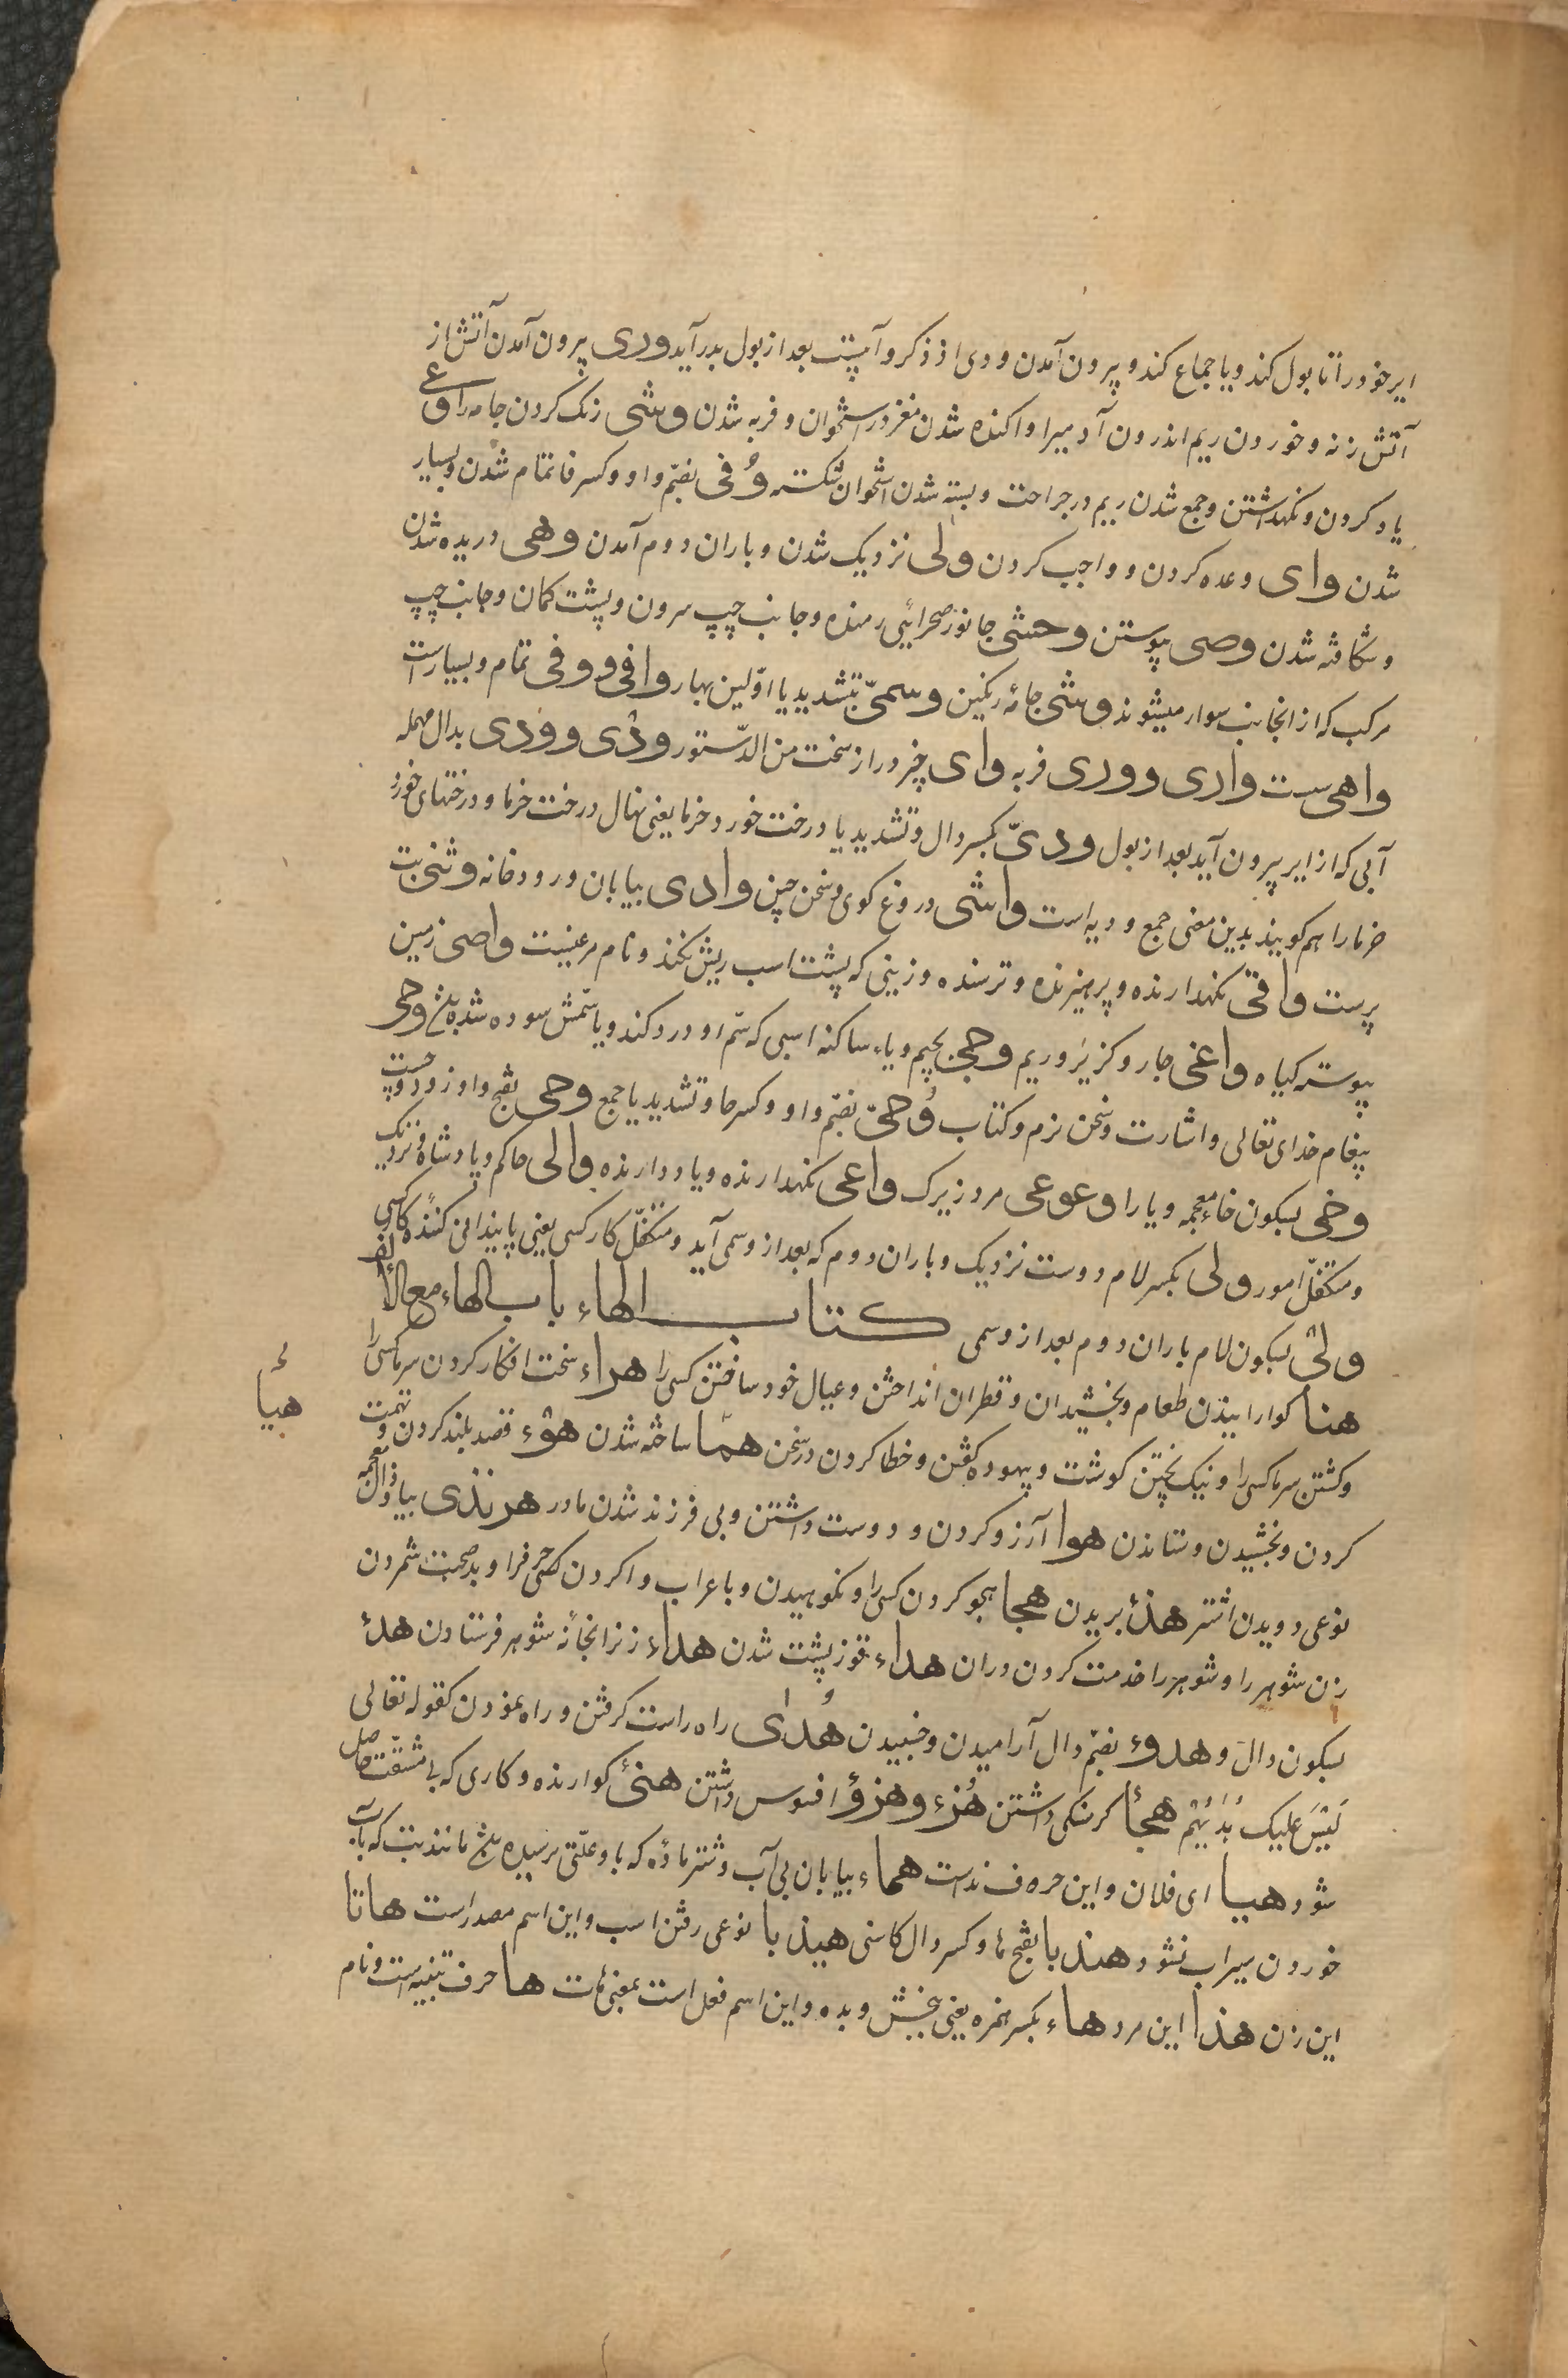 ایر خود را تا بول کند و یا جماع کند و پرون آمدن ودی از ذکر و آبیست بعد از بول بدر آید وری پرون آمدن آتش از
آتش زنه و خوردن ریم اندرون آدمیرا و اکنده شدن مغز در استخوان و فربه شدن وشی رنک کردن جامه را وعی
یاد کردن و نکهداشتن و جمع شدن ریم در جراحت و بسته شدن استخوان شکسته وُفی بضمّ واو و کسر فا تمام شدن و بسیار
شدن وای وعده کردن و واجب کردن ولی نزدیک شدن و باران دوم آمدن وهی دریده شدن
و شکافته شدن وصی پیوستن وحشی جانور صحرائی رمنده و جانب چپ سرون و پشت کمان و جانب چپ
مرکب که از انجانب سوار میشوند وشی جامهٔ رنکین وسمیّ بتشدید یا اوّلین بهار وافی و وفی تمام و بسیار است
واهی سست واری و وری فربه وای چیز دراز سخت من الدّستور وذی و ودی بدال مهمله
آبی که از ایر پرون آید بعد از بول ودیّ بکسر دال و تشدید یا درخت خورد خرما یعنی نهال درخت خرما و درختهای خورد
خرما را هم کویند بدین معنی جمع ودیه است واشی دروغ کوی و سخن چین وادی بیابان و رودخانه وثنی بت
پرست واقی نکهدارنده و پرهیزنده و ترسنده و زینی که پشت اسب ریش نکند و نام مرغیست واصی زمین
پیوسته کیاه واغی جار و کزیر و ریم وجی بجیم و یاء ساکنه اسبی که سّم او درد کند و یا سّمش سوده شده بلغ وحی
پیغام خدای تعالی و اشارت و سخن نرم و کتاب وُحیّ بضمّ واو و کسر حا و تشدید یا جمع وحی بفتح واو زود و پست
وخی بسکون خاء معجمه و یا راه وعوعی مرد زیرک واعی نکهدارنده و یاد دارنده والی حاکم و پادشاه و نزدیک
و متکفّل امور ولی بکسر لام دوست نزدیک و باران دوم که بعد از وسمی آید و متکفّل کار کسی یعنی پایندانی کنندهٔ کار کسی
ولی بسکون لام باران دوم بعد از وسمی کتاب الهاء باب الهاء مع الألف
هنا کوارانیدن طعام و بخشیدان و قطران انداختن و عیال خود ساختن کسی را هراء سخت افکار کردن سرما کسی را
و کشتن سرما کسی را و نیک پختن کوشت و پیهوده کفتن و خطا کردن در سخن همّا ساخته شدن هوء قصد بلند کردن و تهمت
کردن و بخشیدن و ستاندن هوا آرزو کردن و دوست داشتن و بی فرزند شدن مادر هرنذی بیا و ذال معجمه
نوعی دویدن اشتر هذأ بریدن هجا هجو کردن کسی را و نکوهیدن و باعراب واکردن کسی حرف را و بد صحبت شمردن
زن شوهر را و شوهر را خدمت کردن دران هداء قوز پشت شدن هداء زنرا بخانهٔ شوهر فرستادن هدأ
بسکون دال و هدوء بضمّ دال آرامیدن و خسپیدن هُدای راه راست کرفتن و راه نمودن کقوله تعالی
لَیْسَ علیک هُدَیهُمْ هجأ کرسنکی داشتن هُزء و هزؤ افسوس داشتن هنئ کوارنده و کاری که بی مشقّت حاصل
شود هیا ای فلان و این حرف نداست هماء بیابان بی آب و شتر مادّه که با و علّتی رسیده بلغ مانند تب که بآب
خوردن سیراب نشود هندبا بفتح ها و کسر دال کاسنی هیذبا نوعی رفتن اسب و این اسم مصدر است هاتا
این زن هذا این مرد هاء بکسر همزه یعنی ببخش و بده و این اسم فعل است بمعنی هات ها حرف تنبیه است و نام
هیأ